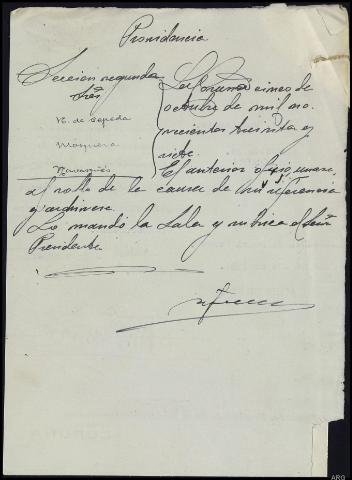 Providencia
Seccion segunda
Sres
V. de Cepeda
Mosquera
Navarrés
La Coruña cinco de
octubre de mil no-
vecientos treinta y
siete.
El anterior oficio, unase
al rollo de la causa de su referencia
y archivese.
Lo mandó la Sala y rubrica el Señor
Presidente
ARG